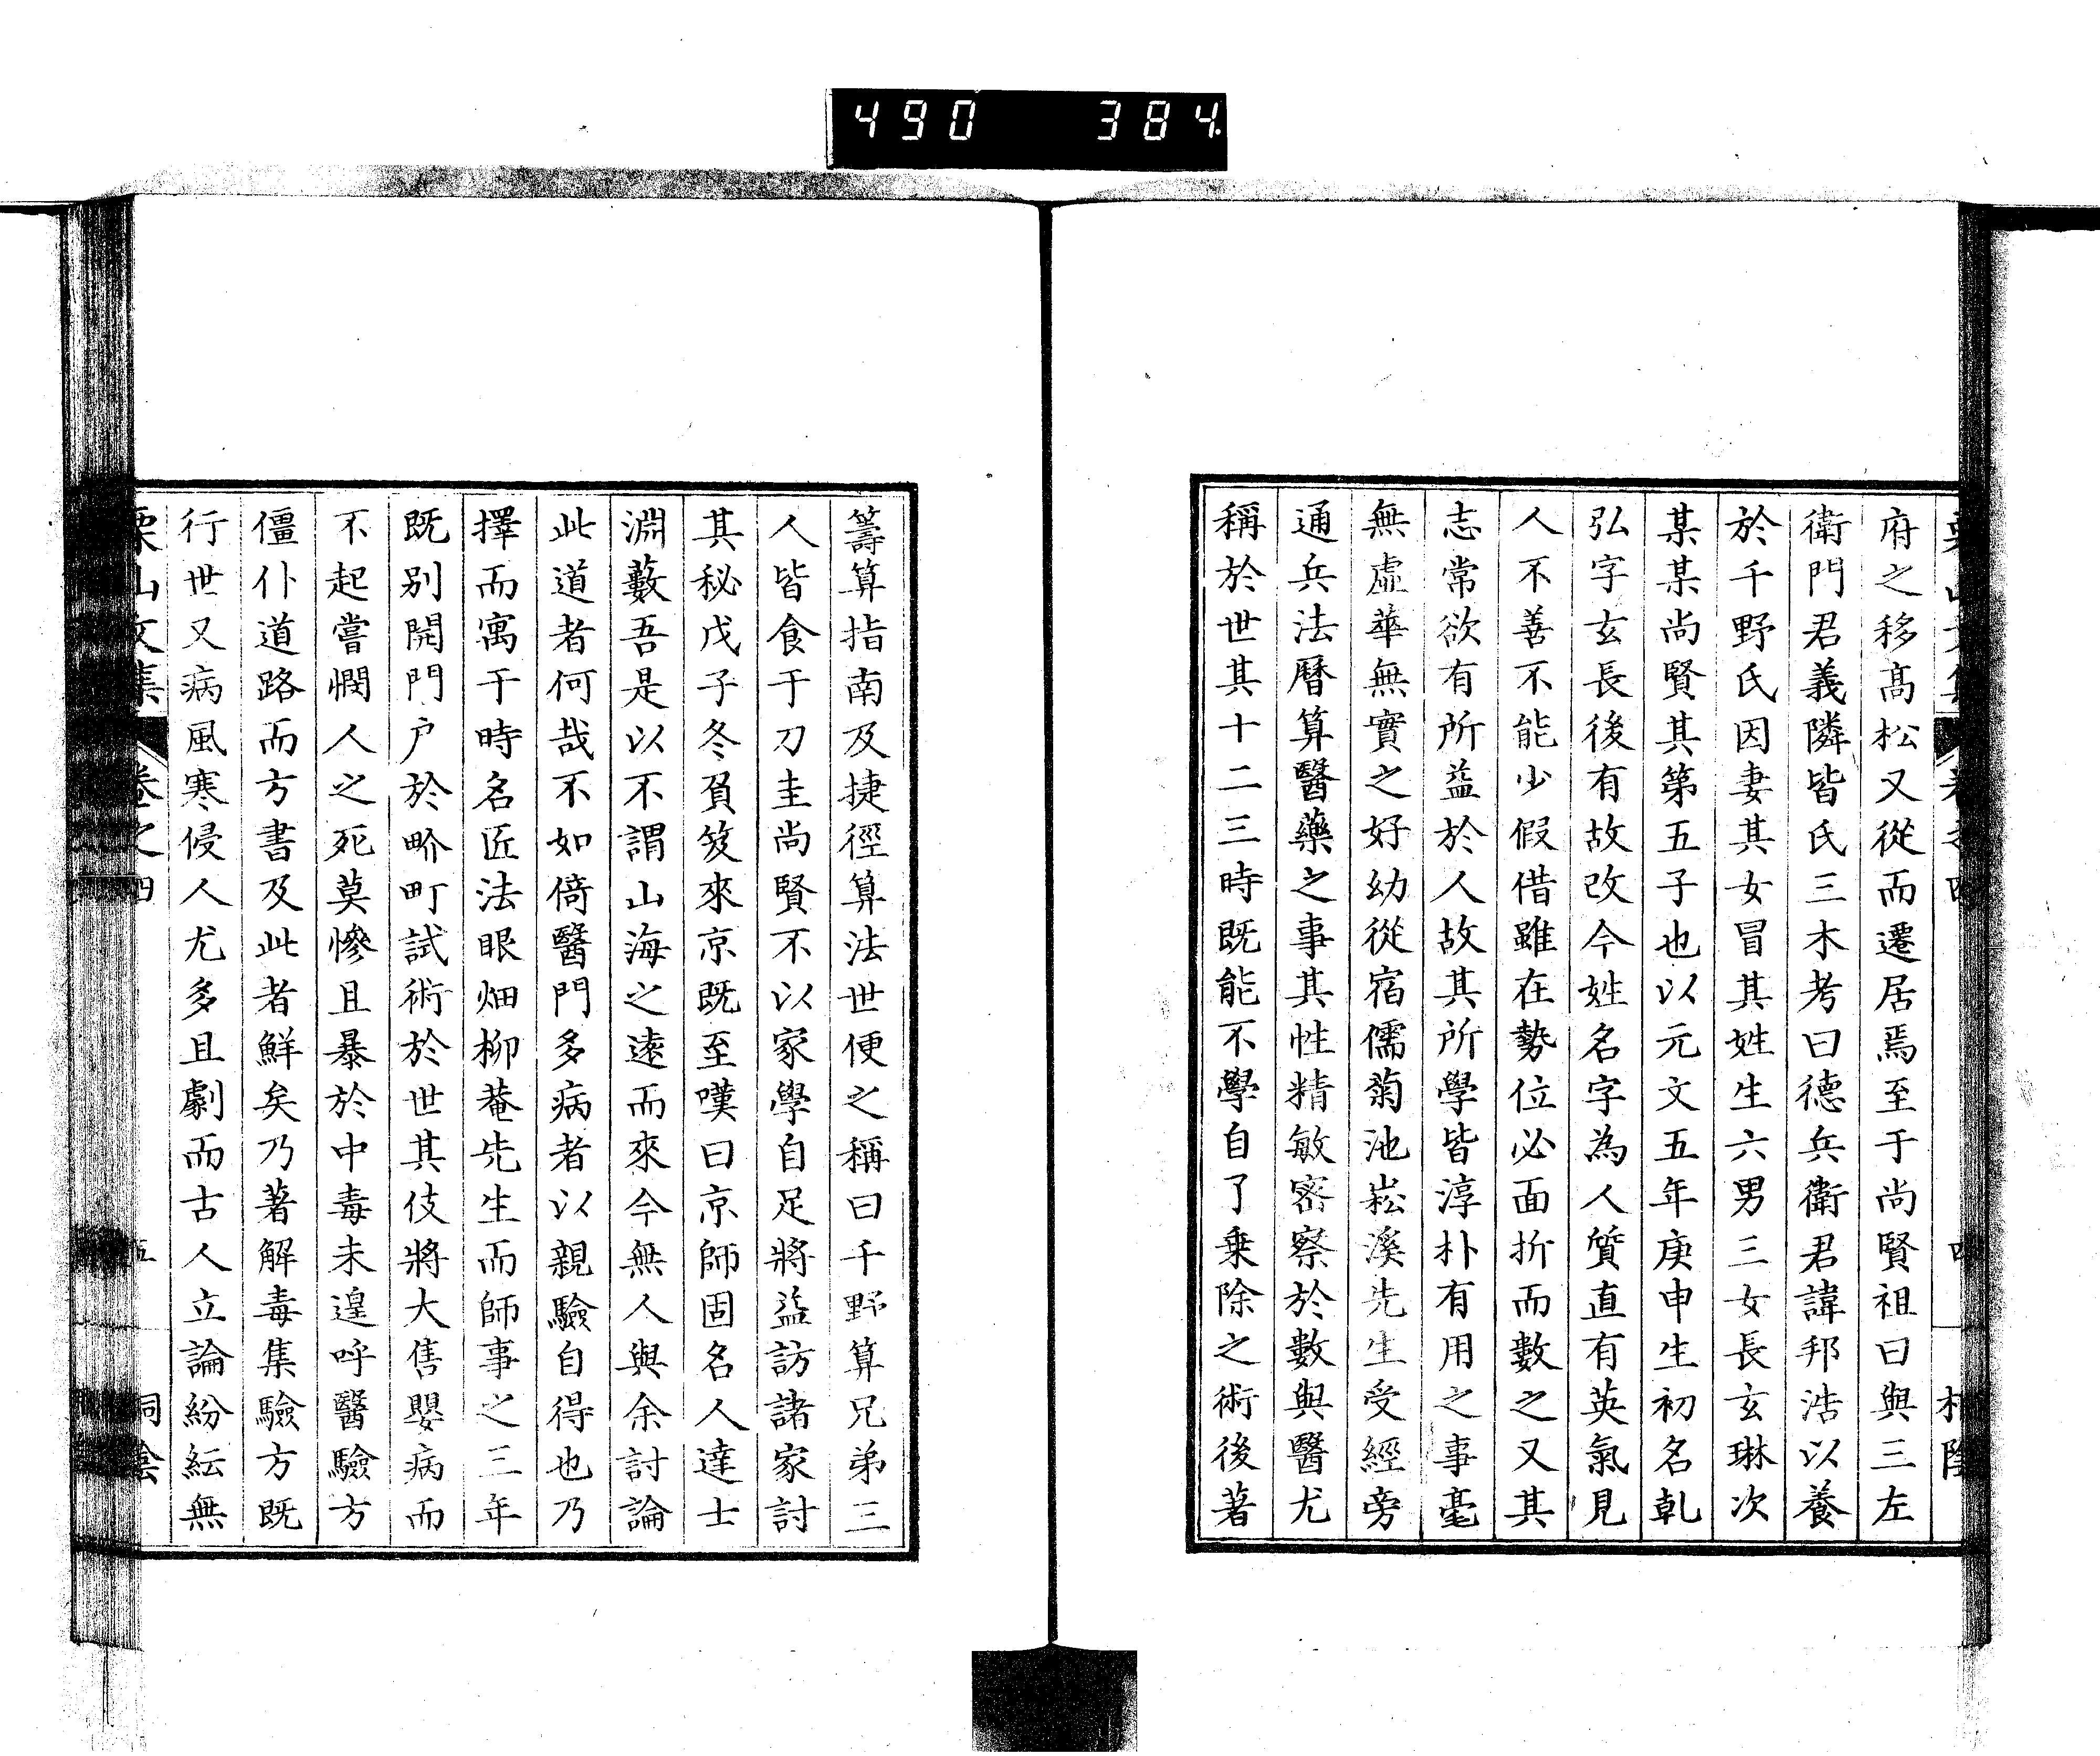 490 384
府之移髙松又從而遷居焉至于尚賢祖曰與三左
衛門君義隣皆氏三木考曰德兵衛君諱邦浩以養
於千野氏因妻其女冒其姓生六男三女長玄琳次
某某尚賢其第五子也以元文五年庚申生初名乹
弘字玄長後有故改今姓名字為人質直有英氣見
人不善不能少假借雖在勢位必面折而數之又其
志常欲有所益於人故其所學皆淳朴有用之事毫
無虛華無實之好幼從宿儒菊池崧溪先生受經旁
通兵法曆算醫藥之事其性精敏密察於數與醫尤
稱於世其十二三時既能不學自了乗除之術後著
籌算指南及捷徑算法世便之稱曰千野算兄弟三
人皆食于刀圭尚賢不以家學自足將益訪諸家討
其秘戊子冬負笈來京既至嘆曰京師固名人達士
淵藪吾是以不謂山海之遠而來今無人與余討論
此道者何哉不如倚醫門多病者以親驗自得也乃
擇而寓于時名匠法眼畑柳菴先生而師事之三年
既别開門户於畍町試術於世其伎將大售嬰病而
不起嘗憫人之死莫慘且暴於中毒未遑呼醫驗方
僵仆道路而方書及此者鮮矣乃著解毒集驗方既
行世又病風寒侵人尤多且劇而古人立論紛紜無
栗山文集 卷之四 五